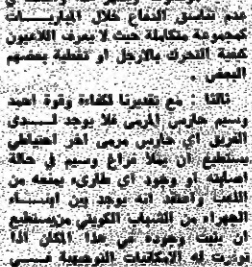 يتم تطبيق الدفاع خلال المباريات
مجموعة متكاملة حيث لا يعرف اللاعبون
كيفية التحرك بالارجل او تغطية بعضهم
البعض .
ثالثا : مع تقديرنا لكفاءة وقوة احمد
وسيم حارس المرمى فلا يوجد لدى
الفريق أي حارس مرمى آخر احتياطي
يستطيع ان يملأ فراغ وسيم في حالة
اصابته او وجود أي طارىء يمنعه من
اللعب واعتقد انه يوجد بين ابناء
الجهراء من الشباب الكويتي من يستطيع
ان يثبت وجوده في هذا المكان اذا
توفرت له الامكانيات التوجيهية